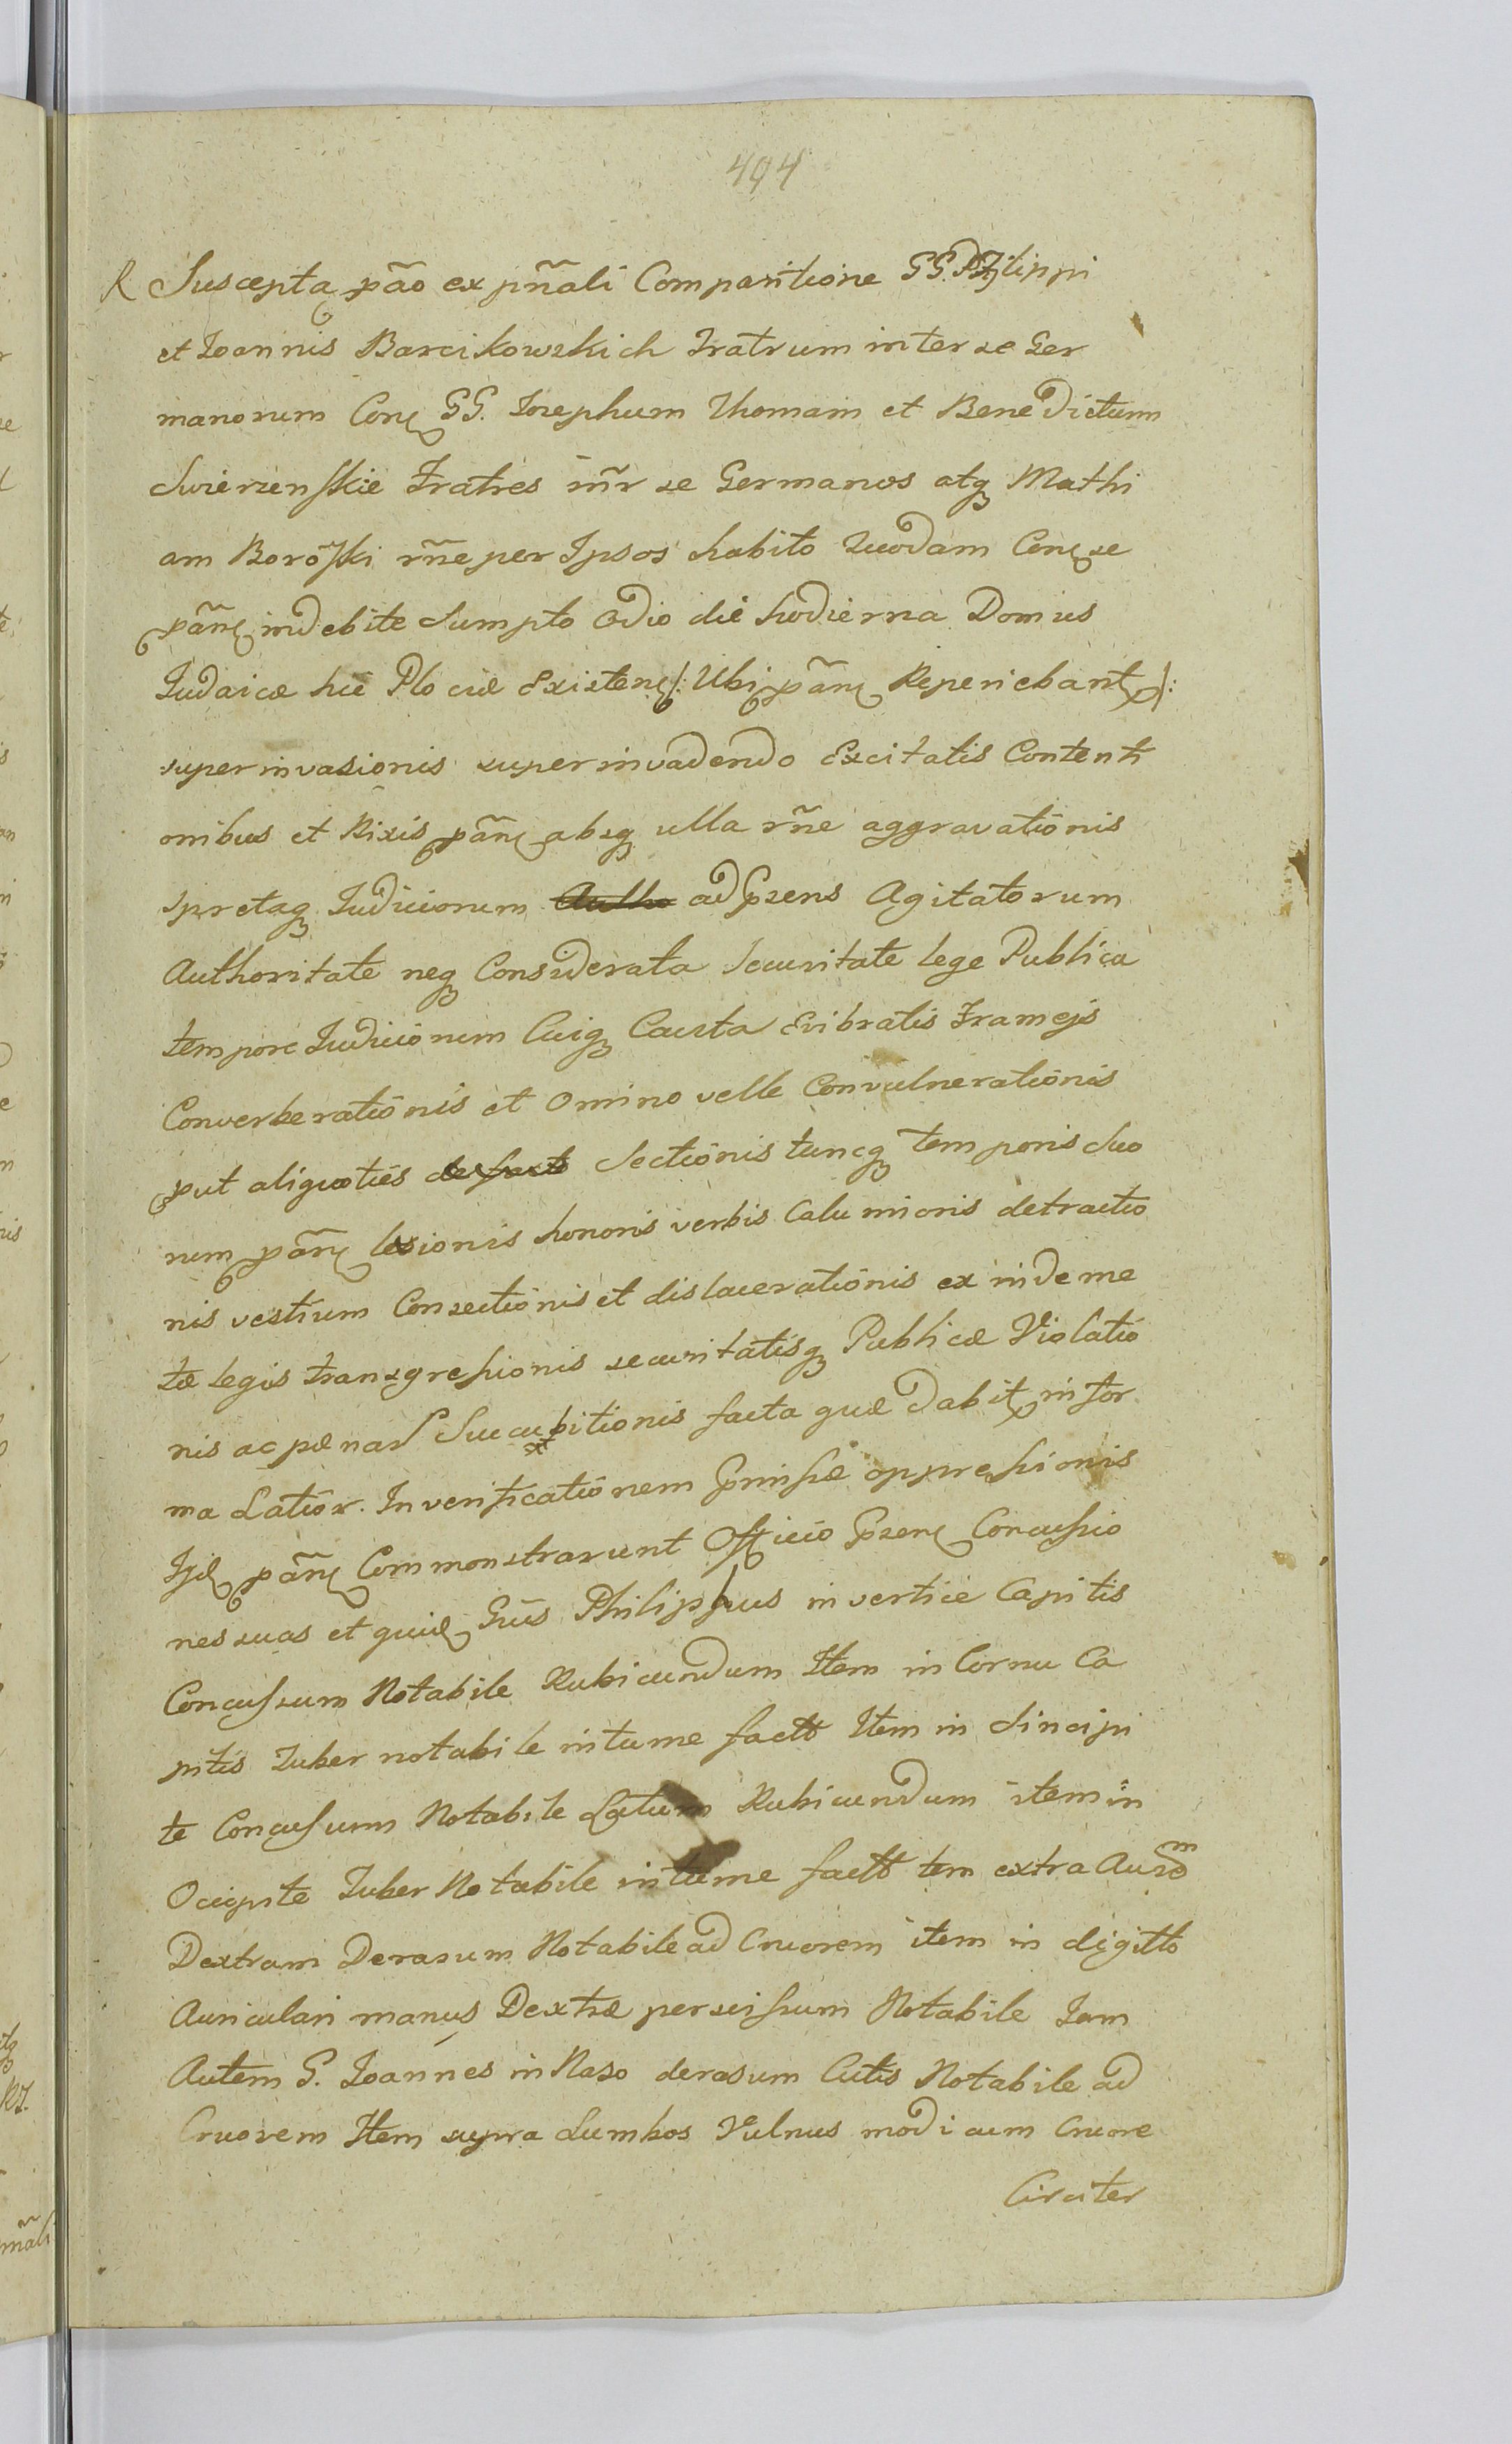 494
R Suscepta pao ex pñali Comparitione GG. Philippi
et Ioannis Barcikowskich Fratrum inter se Ger
manorum Con GG. Iosephum Thomam et Benedictum
Swierzenskie Fratres iñr se Germanos atq Mathi
am Boro͠ski rñe per Ipsos habito Quodam Con se
pañ indebite Sumpto Odio die hodierna Domus
Iudaicæ hic Plociæ Existen /: Ubi pañ Reperiebant :/
superinvasionis superinvadendo Excitatis Contenti
onibus et Rixis pañ absq ulla rñe aggravationis
spretaq Iudiciorum ad Psens Agitatorum
Authoritate neq Considerata Securitate lege Publica
tempore Iudiciorum Cuiq Cauta Evibratis Frameis
Converberationis et Omino velle Convulnerationis
put aliquoties de facto Sectionis tuncq temporis Suo
rum pañ lesionis honoris verbis Calumioris detractio
nis vestium Consectionis et dislacerationis ex inde me
tæ legis transgressionis securitatisq Publicæ Violatio
nis ac pænas Succubitionis facta quæ dabit in for
ma Latior. In verificationem Pmissæ oppressionis
Iid pañ Commonstrarunt Officio Psen Concussio
nes suas et quid Gũs Philippus in vertice Capitis
Concussum Notabile Rubicundum Item in Cornu Ca
pitis Tuber notabile intume factt Item in Sincipi
te Concussum Notabile Latum Rubicundum item in
Occipite Tuber Notabile intume factt tem extra Aurem
Dextram Derasum Notabile ad Cruorem item in digitto
Auriculari manus Dextræ perscissum Notabile Iam
Autem G. Ioannes in Naso derasum Cutis Notabile ad
Cruorem Item supra Lumbos Vulnus modicum Cruore
Circiter